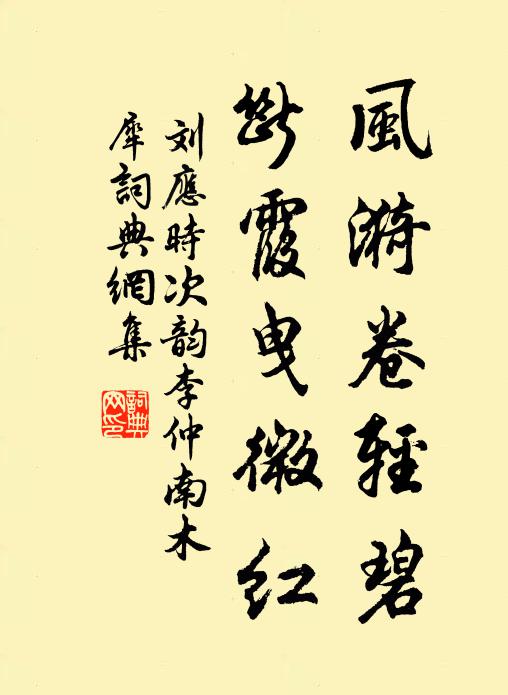 風漪卷輕碧
断霞曳微红
刘應時次韵李仲南木
犀詞典網集
詞典
网印